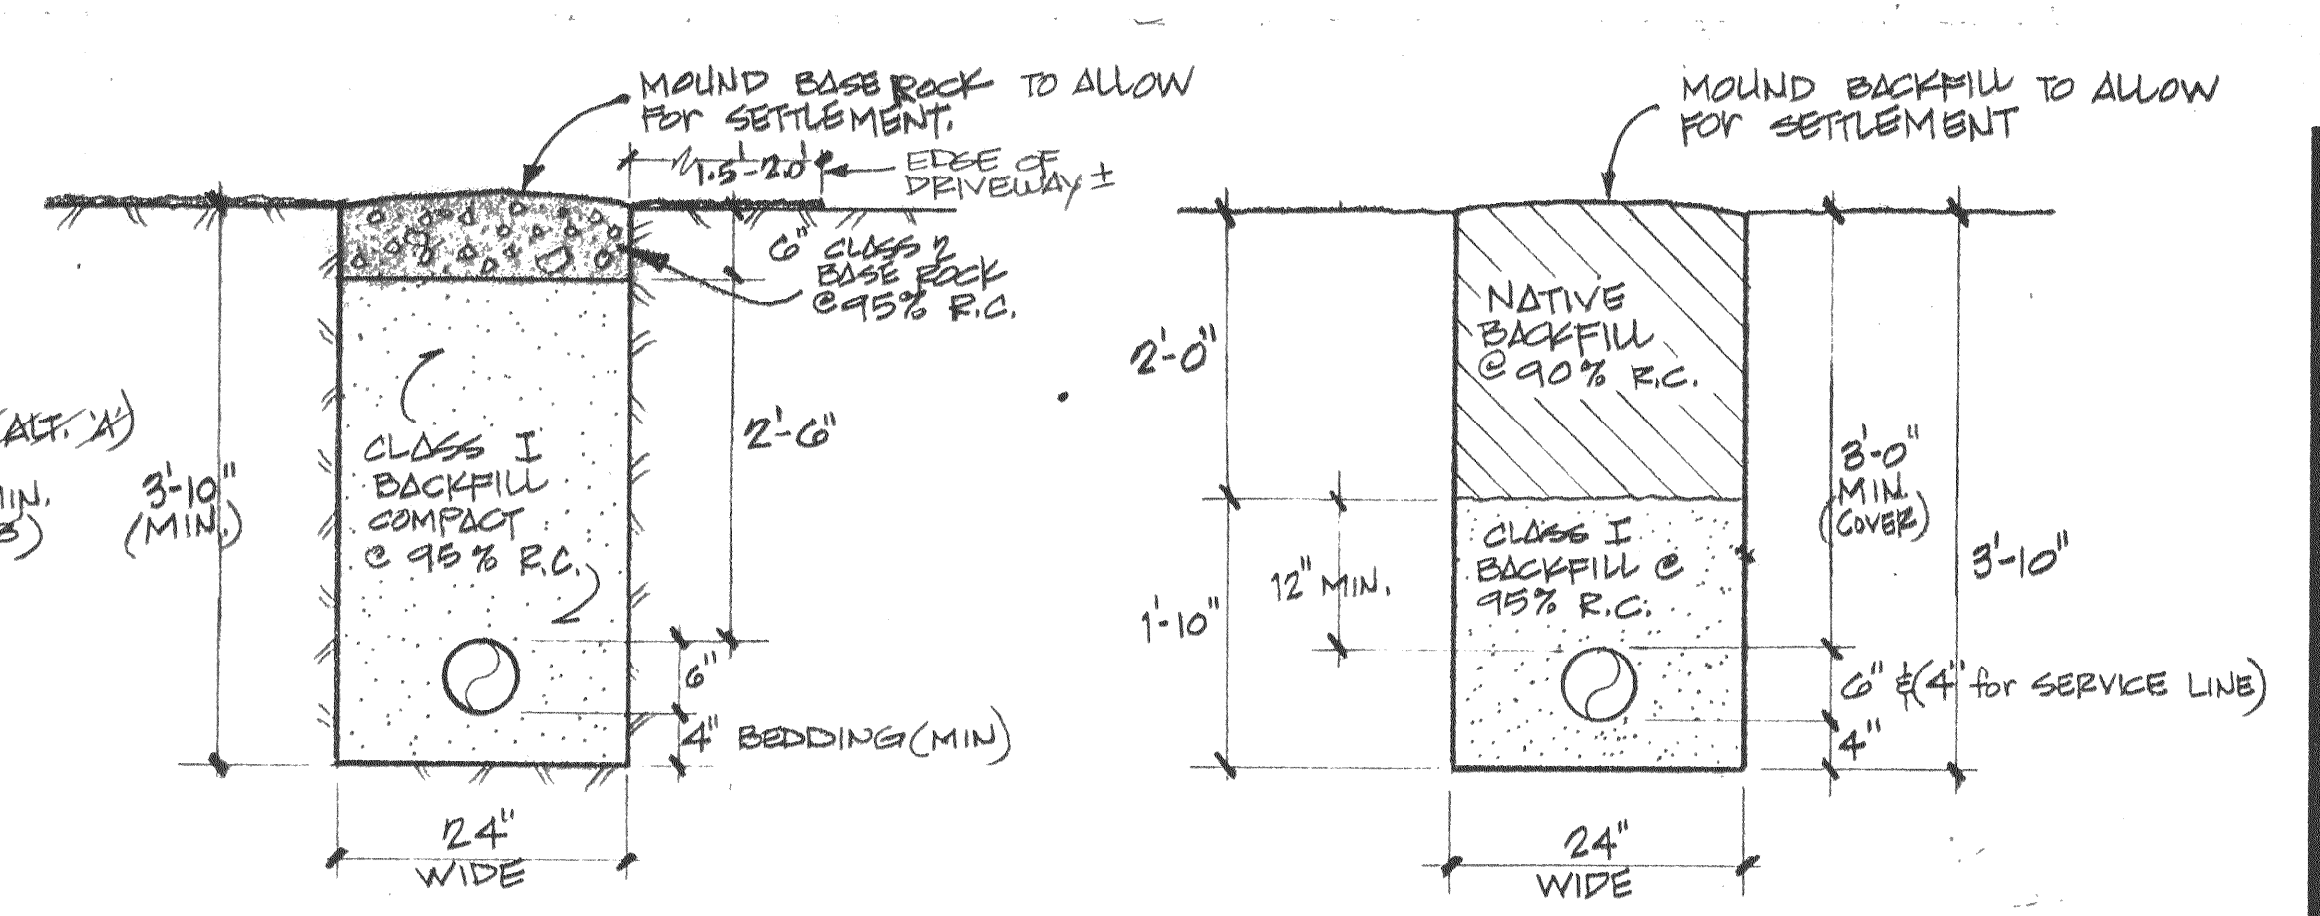 MOUND BASE ROCK TO ALLOW
FOR SETTLEMENT.
1.5'-2.0'
EDGE OF
DRIVEWAY ±
6" CLASS 2
BASE ROCK
@ 95% R.C.
(ALT. 'A')
3'-10"
(MIN.)
CLASS I
BACKFILL
COMPACT
@ 95% R.C.
2'-6"
6"
4" BEDDING (MIN)
24"
WIDE
MOUND BACKFILL TO ALLOW
FOR SETTLEMENT
2'-0"
NATIVE
BACKFILL
@ 90% R.C.
12" MIN.
1'-10"
CLASS I
BACKFILL @
95% R.C.
3'-0"
MIN.
(COVER)
3'-10"
6" & (4" for SERVICE LINE)
4"
24"
WIDE